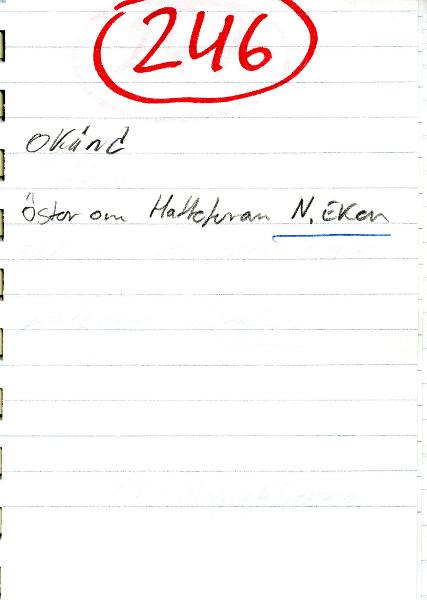 246
OKänd
Öster om Hattefuran N. EKen